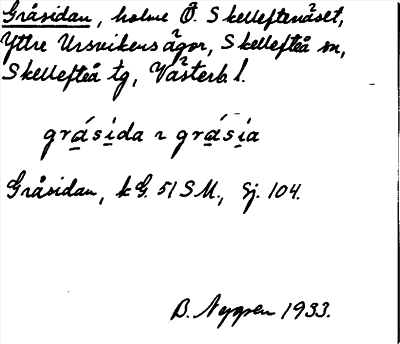 Gråsidan, holme Ö. Skelleftenäset,
Yttre Ursvikens ägor, Skellefteå sn,
Skellefteå tg, Västerb. l.
gråsida ~ gråsia
Gråsidan, kG. 51 SM., Sj. 104.
B. Nygren 1933.